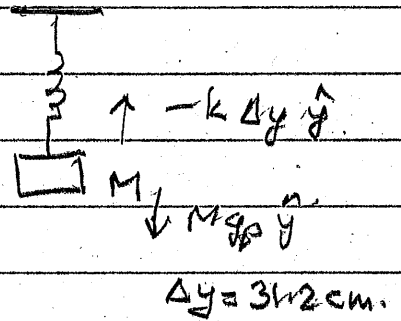 -k Δy ŷ
M
Mg ŷ
Δy = 31.2 cm.